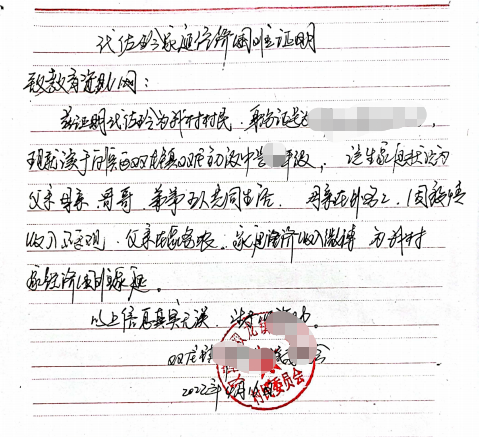 代佐玲家庭经济困难证明
致教育资助网:
兹证明代佐玲为我村村民,身份证是
现就读于 双龙镇双龙初级中学 年级, 该生家庭状况为
父亲 母亲 哥哥 弟弟 五人共同生活. 母亲在外务工,因疫情
收入不乐观.父亲在家务农.家庭经济收入微薄 为我村
家经济困难家庭.
以上信息真实无误,
双龙镇 会
2022年 月 日
双龙镇
村民委员会